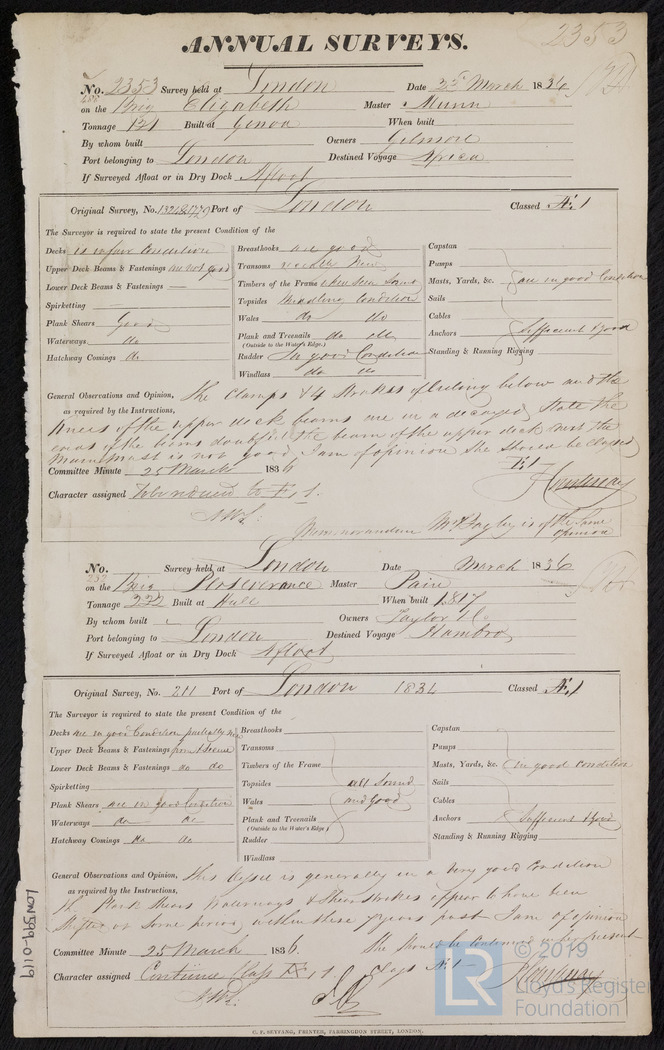 2353
ANNUAL SURVEYS.
No. 2353 Survey held at London Date 25 March 1836
on the Brig Elizabeth Master Munn
Tonnage 121 Built at Genoa When built
By whom built Owners Gilmore
Port belonging to London Destined Voyage Africa
If Surveyed Afloat or in Dry Dock Afloat
Original Survey, No. Port of London Classed Æ.1
The Surveyor is required to state the present Condition of the
Decks is in fair Condition
Upper Deck Beams & Fastenings are not good
Lower Deck Beams & Fastenings —
Spirketting
Plank Shears Good
Waterways do
Hatchway Comings do
Breasthooks are good
Transoms New
Timbers of the Frame when seen Sound
Topsides Middling Condition
Wales do do
Plank and Treenails do do
(Outside to the Water's Edge.)
Rudder In good Condition
Windlass do do
Capstan
Pumps
Masts, Yards, &c. are in good Condition
Sails
Cables
Anchors Sufficient & good
Standing & Running Rigging
General Observations and Opinion, The Clamps & 4 Strakes of Ceiling below and the
as required by the Instructions,
knees of the upper deck beams are in a decayed State the
ends of the beams doubtful the beam of the upper deck next the
Mainmast is not good I am of opinion She should be Classed
E.1
Committee Minute 25 March 1836
Character assigned To be reduced to E 1.
Memorandum Mr Bayley is of the Same
opinion
No. 252 Survey held at London Date March 1836
on the Brig Perseverance Master
Tonnage 222 Built at Hull When built 1817
By whom built - Owners Taylor & Co
Port belonging to London Destined Voyage Hambro
If Surveyed Afloat or in Dry Dock Afloat
Original Survey, No. 211 Port of London 1834 Classed Æ.1
The Surveyor is required to state the present Condition of the
Decks are in good Condition partially New
Upper Deck Beams & Fastenings
Lower Deck Beams & Fastenings do do
Spirketting
Plank Shears are in good Condition
Waterways do do
Hatchway Comings do do
Breasthooks
Transoms
Timbers of the Frame
Topsides all Sound
Wales and Good
Plank and Treenails
(Outside to the Water's Edge)
Rudder
Windlass
Capstan
Pumps
Masts, Yards, &c. in good Condition
Sails
Cables
Anchors & Sufficient & good
Standing & Running Rigging
General Observations and Opinion, This Vessel is generally in a Very good Condition
as required by the Instructions,
The Plank Shears Waterways & Sheerstrakes appear to have been
Shifted at Some period within these 7 years past I am of opinion
She should be Continued in her present
Committee Minute 25 March 1836.
Class Æ 1
Character assigned Continue Class Æ 1.
C. F. SEYFANG, PRINTER, FARRINGDON STREET, LONDON.
LON 599-0119
© 2019
LR
Lloyd's Register
Foundation